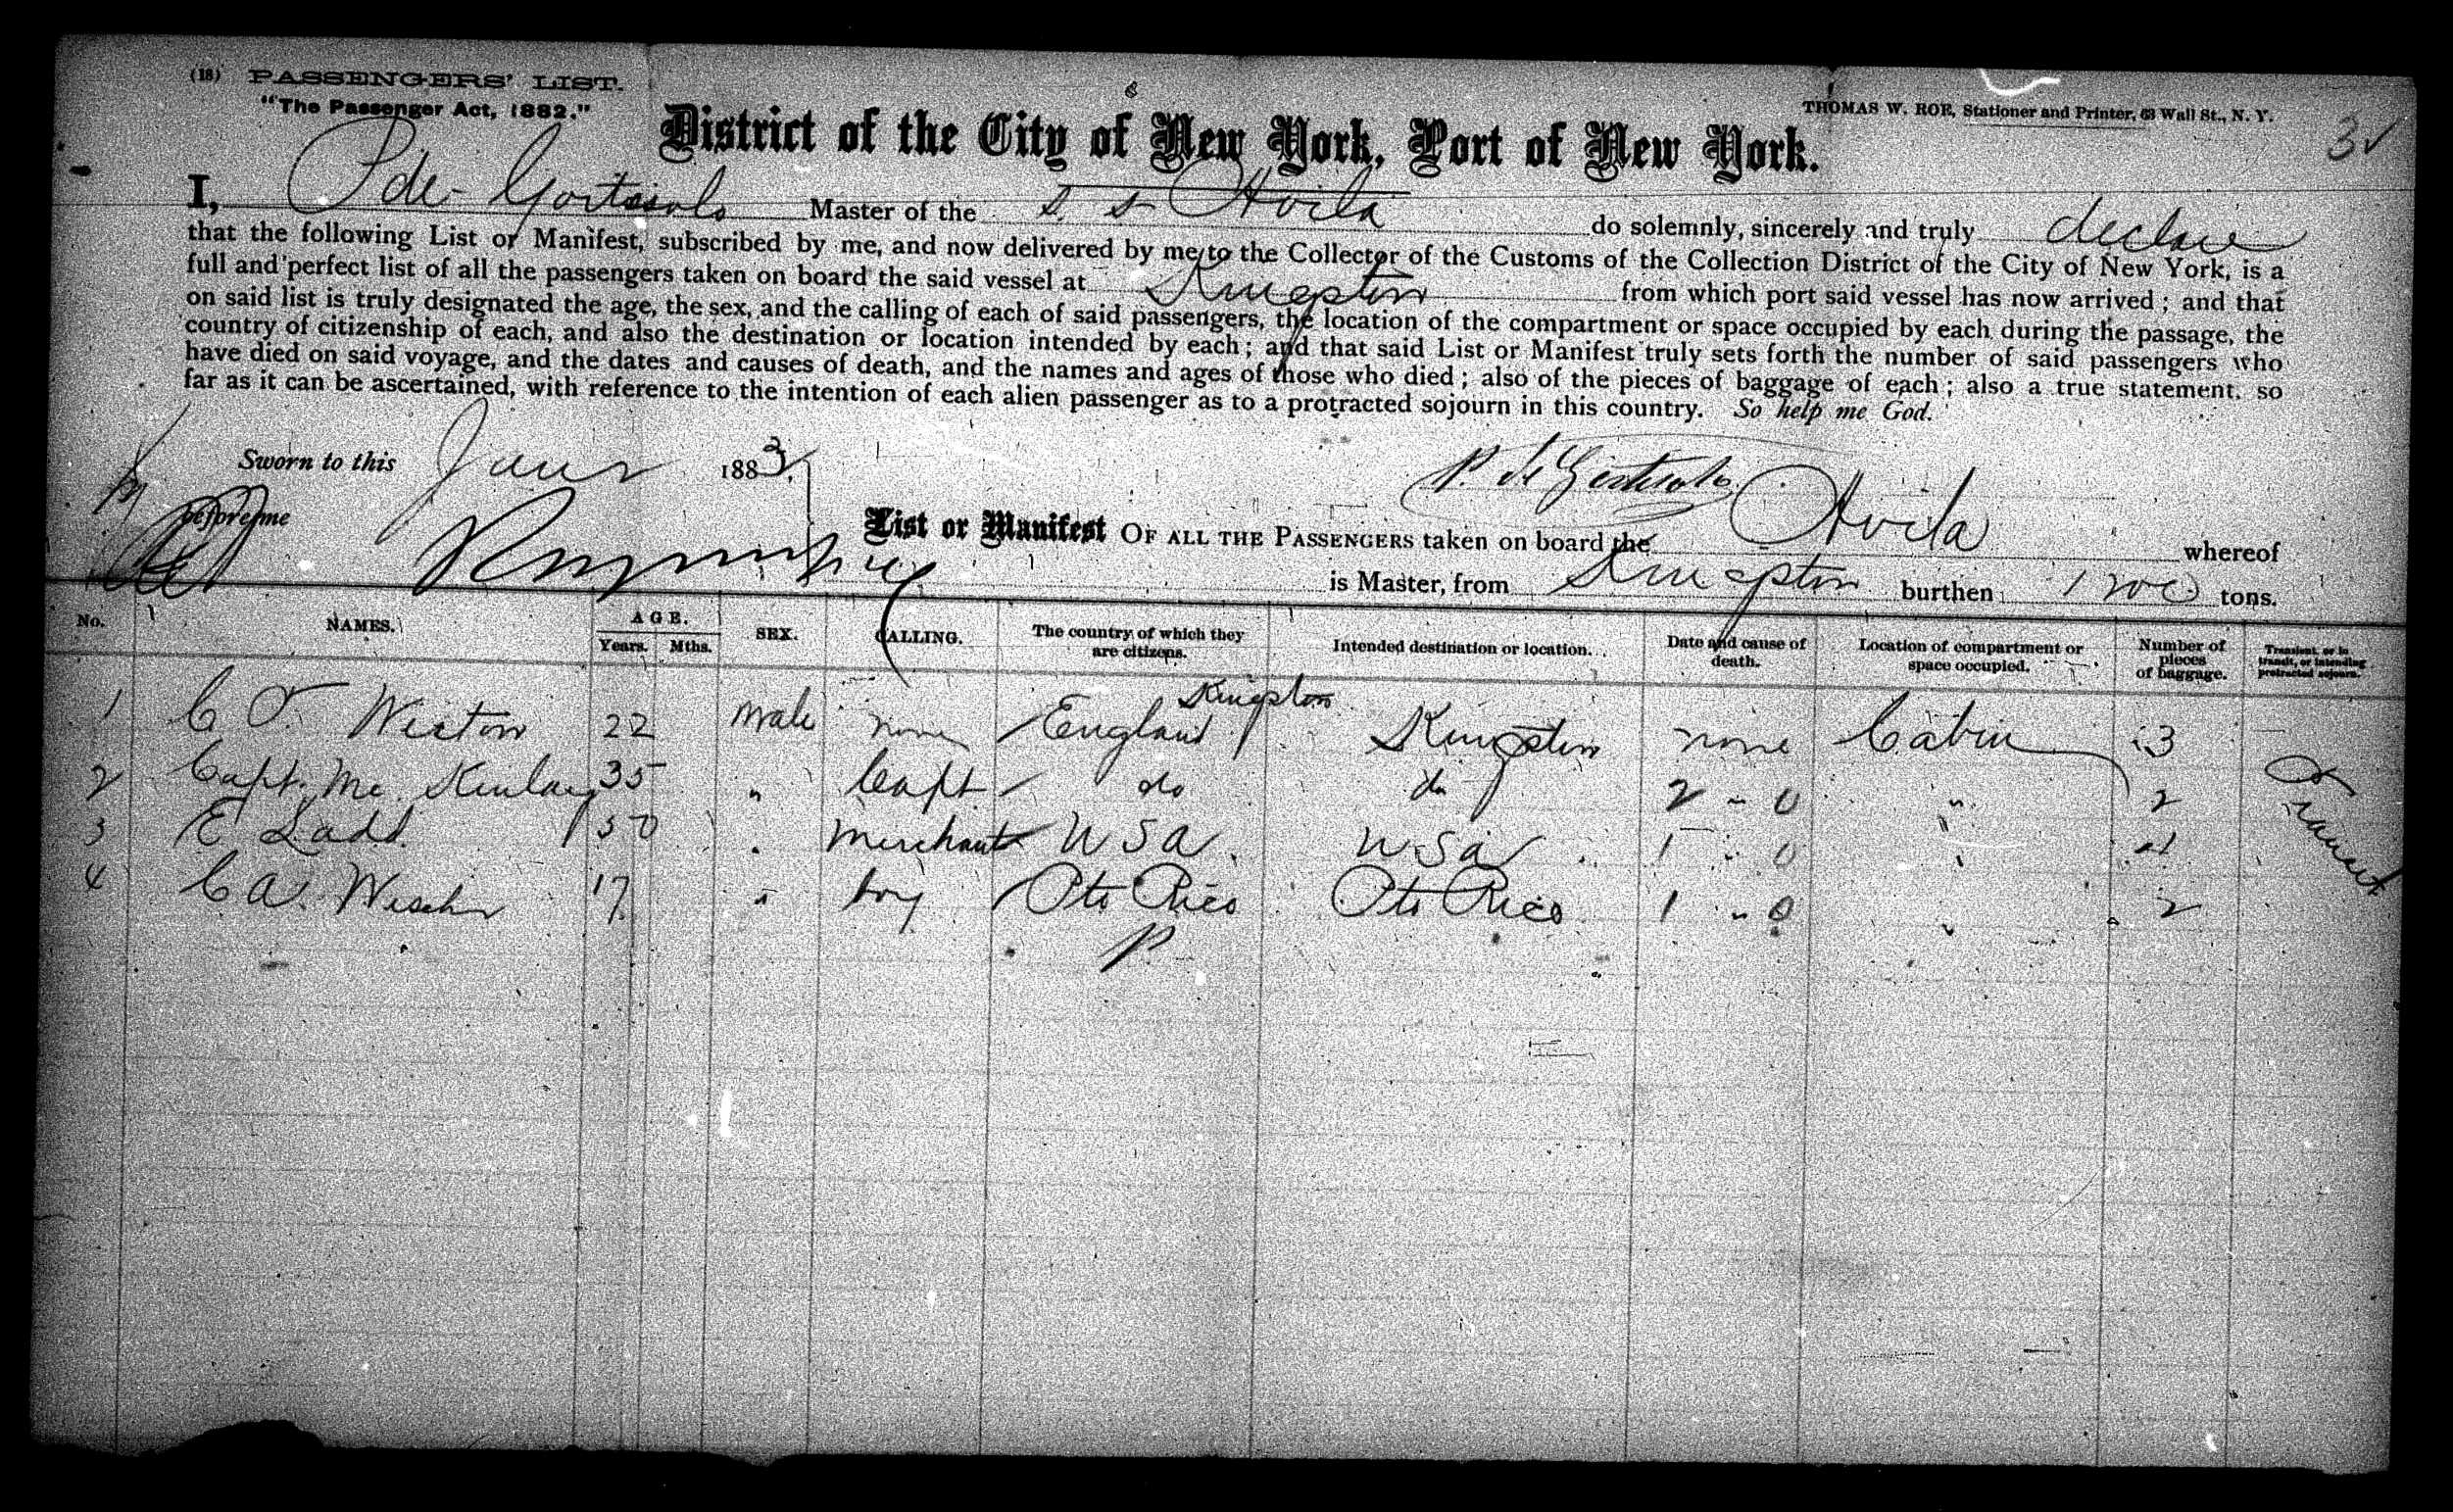 (18) PASSENGERS' LIST.
"The Passenger Act, 1882."
THOMAS W. ROE, Stationer and Printer, 63 Wall St., N. Y.
3
District of the City of New York, Port of New York.
I, P de Master of the S. S Avila do solemnly, sincerely and truly declare
that the following List or Manifest, subscribed by me, and now delivered by me to the Collector of the Customs of the Collection District of the City of New York, is a
full and perfect list of all the passengers taken on board the said vessel at Kingston from which port said vessel has now arrived; and that
on said list is truly designated the age, the sex, and the calling of each of said passengers, the location of the compartment or space occupied by each during the passage, the
country of citizenship of each, and also the destination or location intended by each; and that said List or Manifest truly sets forth the number of said passengers who
have died on said voyage, and the dates and causes of death, and the names and ages of those who died; also of the pieces of baggage of each; also a true statement, so
far as it can be ascertained, with reference to the intention of each alien passenger as to a protracted sojourn in this country. So help me God.
Sworn to this Jany 2 1883,
P. de
before me
List or Manifest OF ALL THE PASSENGERS taken on board the Avila whereof
is Master, from Kingston burthen tons.
No. NAMES. AGE. Years. Mths. SEX. CALLING. The country of which they are citizens. Intended destination or location. Date and cause of death. Location of compartment or space occupied. Number of pieces of baggage. Transient, or in transit, or intending protracted sojourn.
Kingston
1 C T. 22 Male none England Kingston none Cabin 3
2 Capt. Mc Kinlay 35 " Capt do do 2 - 0 " 2
3 E Ladd 50 " Merchant U S A. U S A 1 - 0 " 1
4 C A. 17 " boy Pto Rico Pto Rico 1 - 0 " 2
Transient
P